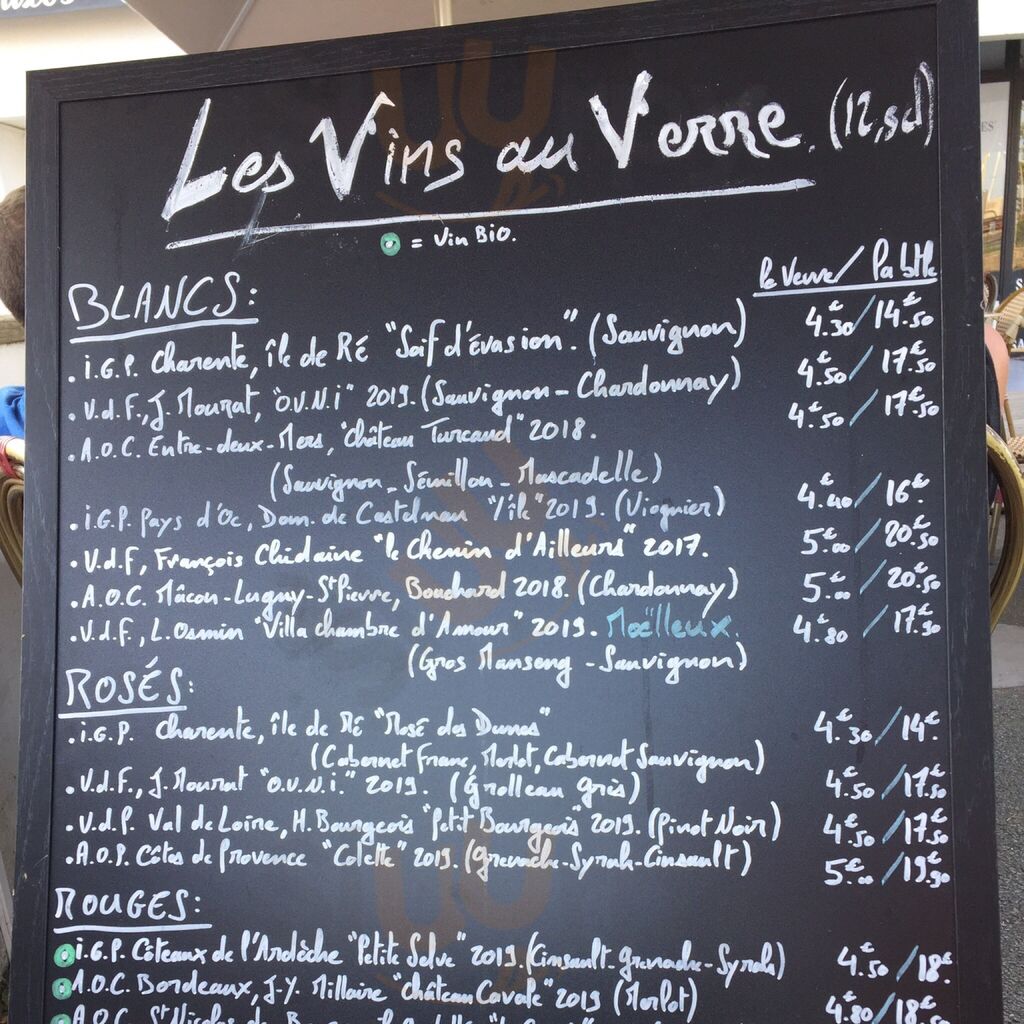 Les Vins au Verre. (12,5cl)
= Vin Bio.
le Verre / la btlle
BLANCS:
. i.G.P. Charente, île de Ré "Soif d'évasion". (Sauvignon) 4.€30 / 14.€50
. V.d.F., J. Mourat, "O.V.N.i" 2019. (Sauvignon - Chardonnay) 4.€50 / 17.€50
. A.O.C. Entre-deux-Mers, "Château Turcaud" 2018. 4.€50 / 17.€50
(Sauvignon - Sémillon - Muscadelle)
. i.G.P. Pays d'Oc, Dom. de Castelnau "l'île" 2019. (Viognier) 4.€40 / 16.€
. V.d.F, François Chidaine "le Chenin d'Ailleurs" 2017. 5.€00 / 20.€50
. A.O.C. Mâcon-Lugny-St Pierre, Bouchard 2018. (Chardonnay) 5.€00 / 20.€50
. V.d.F., L. Osmin "Villa chambre d'Amour" 2019. Moëlleux. 4.€80 / 17.€90
(Gros Manseng - Sauvignon)
ROSÉS:
. i.G.P. Charente, île de Ré "Rosé des Dunes" 4.€30 / 14.€
(Cabernet Franc, Merlot, Cabernet Sauvignon)
. V.d.F., J. Mourat "O.V.N.i." 2019. (Grolleau gris) 4.€50 / 17.€50
. V.d.F. Val de Loire, H. Bourgeois "Petit Bourgeois" 2019. (Pinot Noir) 4.€50 / 17.€50
. A.O.P. Côtes de Provence "Colette" 2019. (Grenache-Syrah-Cinsault) 5.€00 / 19.€90
ROUGES:
i.G.P. Côteaux de l'Ardèche "Petite Selve" 2019. (Cinsault-grenache-Syrah) 4.€50 / 18.€
A.O.C. Bordeaux, J-Y. Millaire "château Cavale" 2019 (Merlot) 4.€80 / 18.€50
A.O.C. St Nicolas de